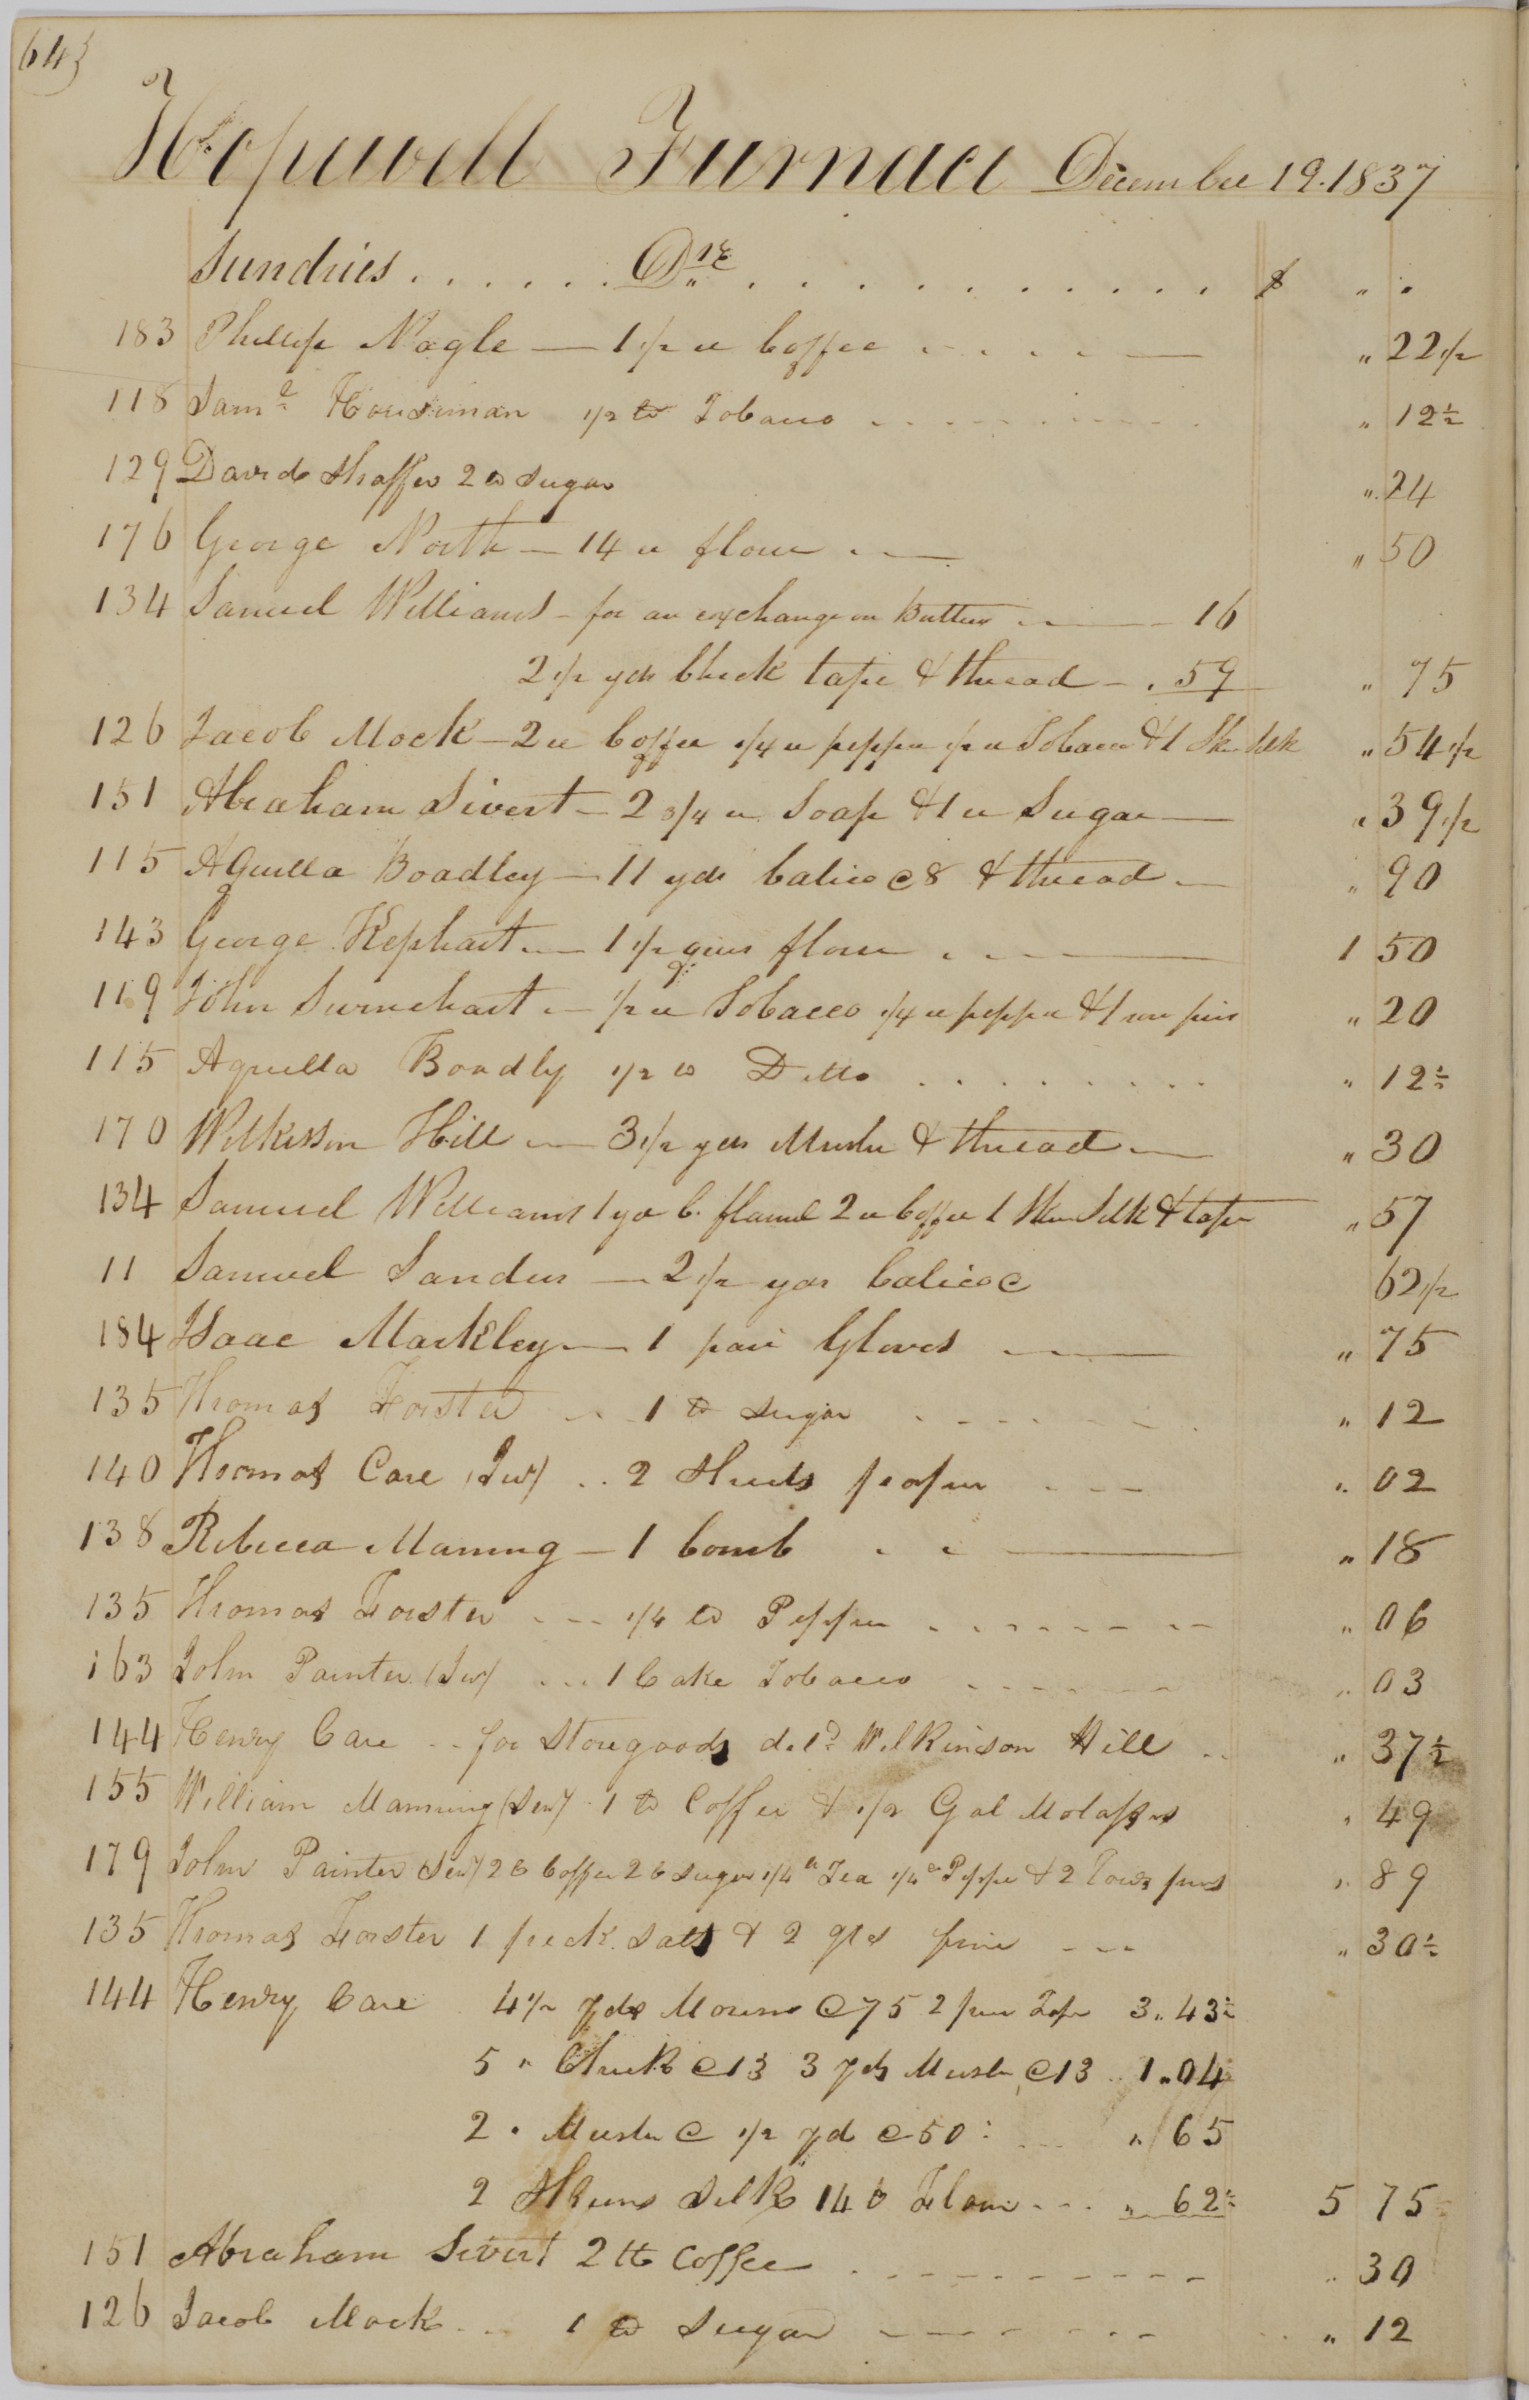 64}
Hopewell Furnace December 19. 1837
Sundries . . . . . . Drs . . . . . . . . . . . $ " .
183 Phillip Nagle — 1 1/2 lb Coffee . . . . — " 22 1/2
118 Saml Houseman 1/2 lb Tobacco . . . . . . . . . " 12 1/2
129 David Shaffer 2 lb Sugar " 24
176 George North — 14 lb flour . — " 50
134 Samuel Williams — for an exchange on Butter — 16
2 1/2 yds Check tape & thread — . 59 " 75
126 Jacob Mock — 2 lb Coffee 1/4 lb pepper 1/2 lb Tobacco & 1 Sk Silk " 54 1/2
151 Abraham Sivert — 2 3/4 lb Soap & 1 lb Sugar — " 39 1/2
115 Aquilla Boadley — 11 yds Calico @ 8 & thread — " 90
143 George Kephart — 1 1/2 flour . — 1 50
119 John Surnehart — 1/2 lb Tobacco 1/4 lb pepper & 1 row pins " 20
115 Aquilla Boadly 1/2 lb Ditto . . . . . . . . . " 12 1/2
170 Wilkisson Hill — 3 1/2 yds Muslin & thread — " 30
134 Samuel Williams 1 yd C. flannel 2 lb Coffee 1 Skn Silk & tape " 57
11 Samuel Sanders — 2 1/2 yds Calico @ 62 1/2
184 Isaac Markley — 1 pair Gloves — " 75
135 Thomas Forster . . 1 lb Sugar . . . . . . . " 12
140 Thomas Care (Jur) . . 2 Sheets paper . . . " 02
138 Rebecca Maning — 1 Comb . . — " 18
135 Thomas Forster . . . 1/4 lb Pepper . . . . . . . " 06
163 John Painter (Jur) . . . 1 Cake Tobacco . . . . . . " 03
144 Henry Care . . for Storegoods deld Wilkinson Hill . . " 37 1/2
155 William Manning (Senr) . 1 lb Coffee & 1/2 Gal Molasses " 49
179 John Painter (Senr) 2 lb Coffee 2 lb Sugar 1/4 lb Tea 1/4 lb Pepper & 2 rows pins " 89
135 Thomas Forster 1 peck Salt & 2 qts fine . . . " 30 1/2
144 Henry Care 4 1/2 yds @ 75 2 Tape 3 " 43 1/2
5 " Check @ 13 3 yds Muslin @ 13 . . 1 " 04
2 " Muslin @ 1/2 yd @ 50 : . . . " 65
2 Skeins Silk 14 lb Flour . . . " 62 1/2 5 75
151 Abraham Sivert 2 lb Coffee . . . . . . . . . . " 30
126 Jacob Mock . . . 1 lb Sugar . . . . . . . " 12